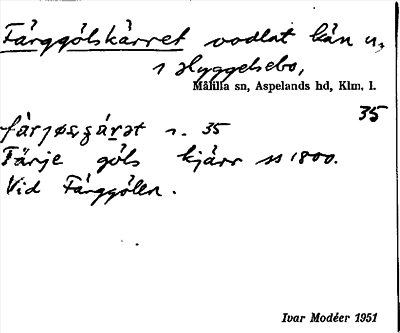 Färggölskärret vodlat kän u,
1 Hyggelsebo,
Målilla sn, Aspelands hd, Klm. l.
35
r. 35
Färje göls kjärr ss 1800.
Vid Färggölen.
Ivar Modéer 1951